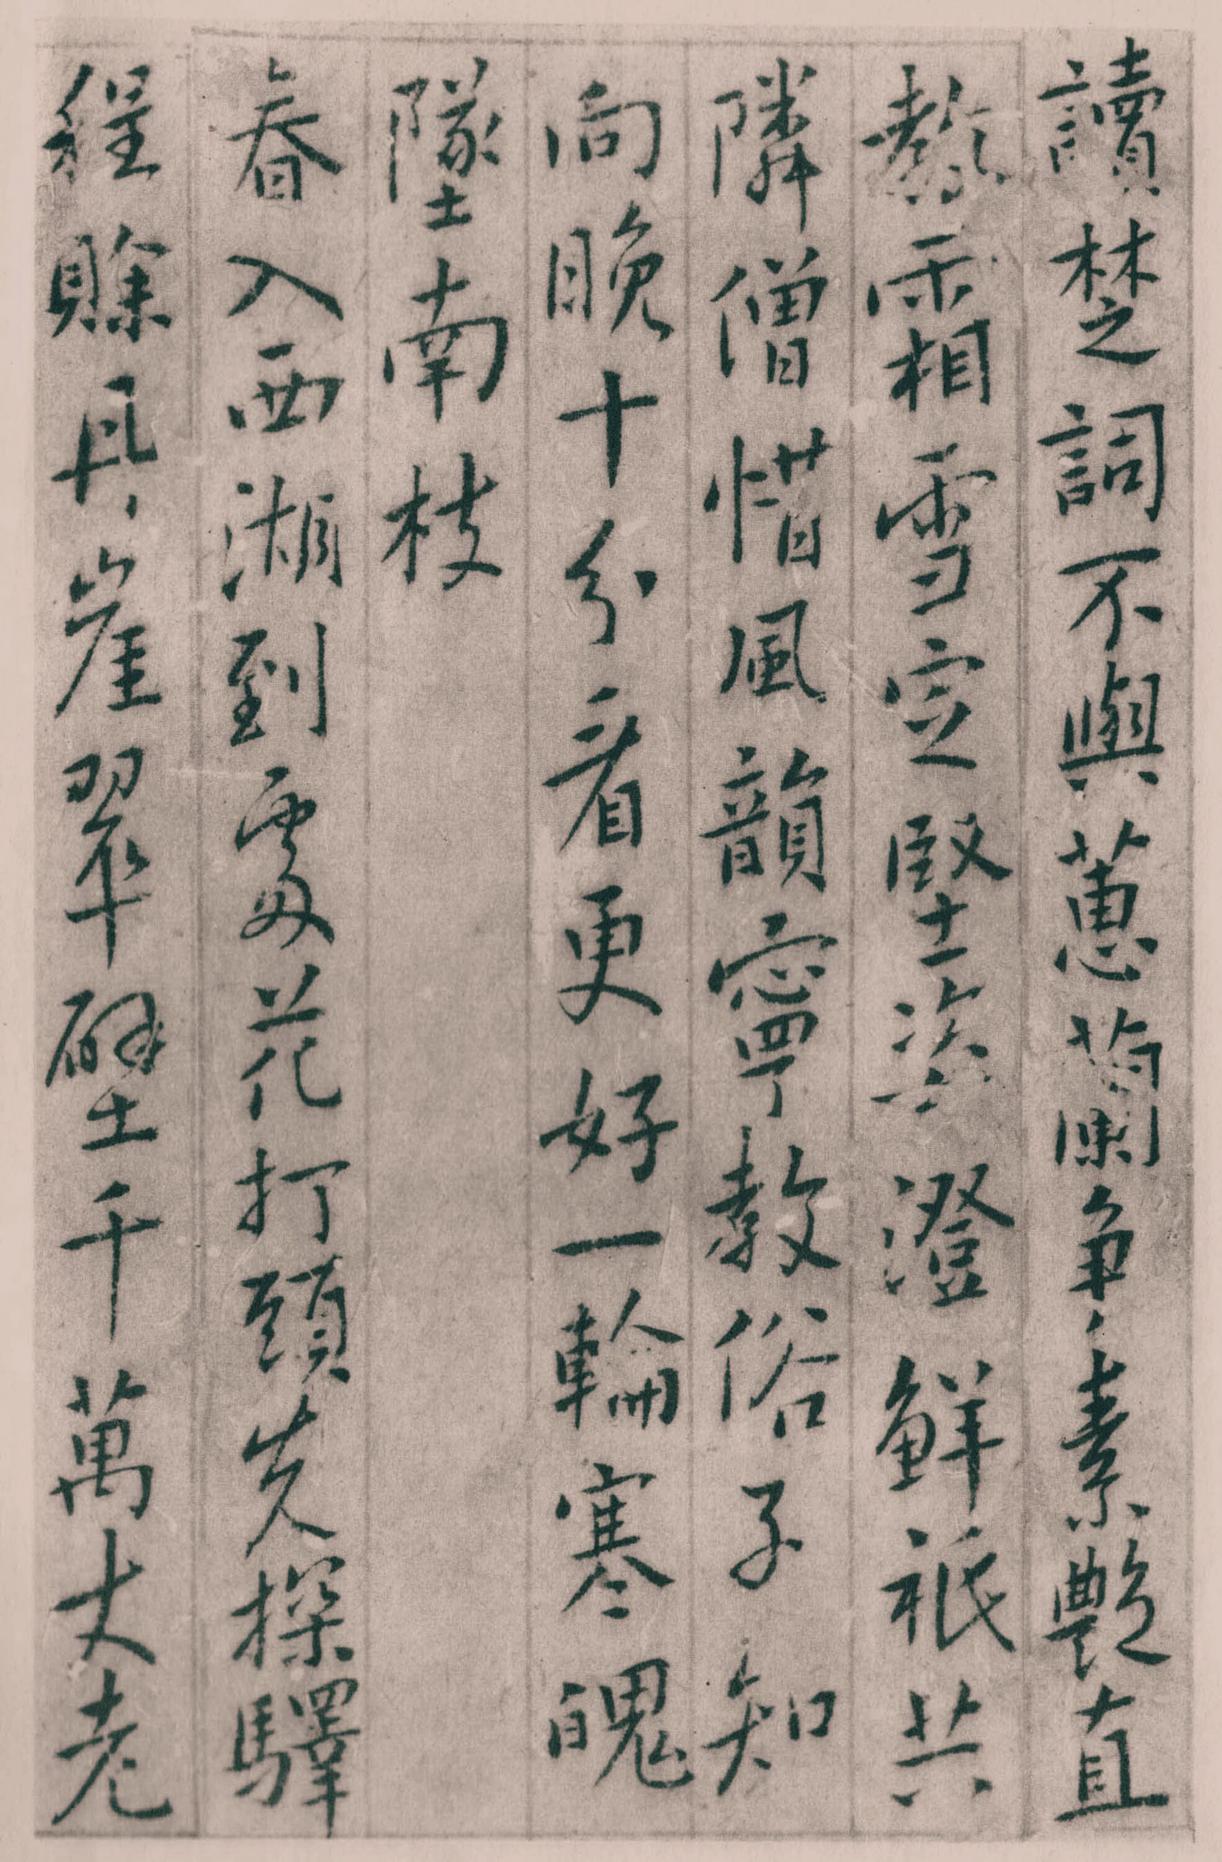 讀楚詞不與蕙蘭爭素艷直
熬霜雪定堅姿澄鮮祇共
隣僧惜風韻寧教俗子知
向晚十分看更好一輪寒魄
墜南枝
春入西湖到處花打頭先探驛
程賖丹崖翠壁千萬丈老